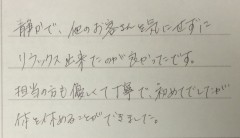 静かで、他のお客さんを気にせずに
リラックス出来たのが良かったです。
担当の方も優しくて丁寧で、初めてでしたが
体を休めることができました。